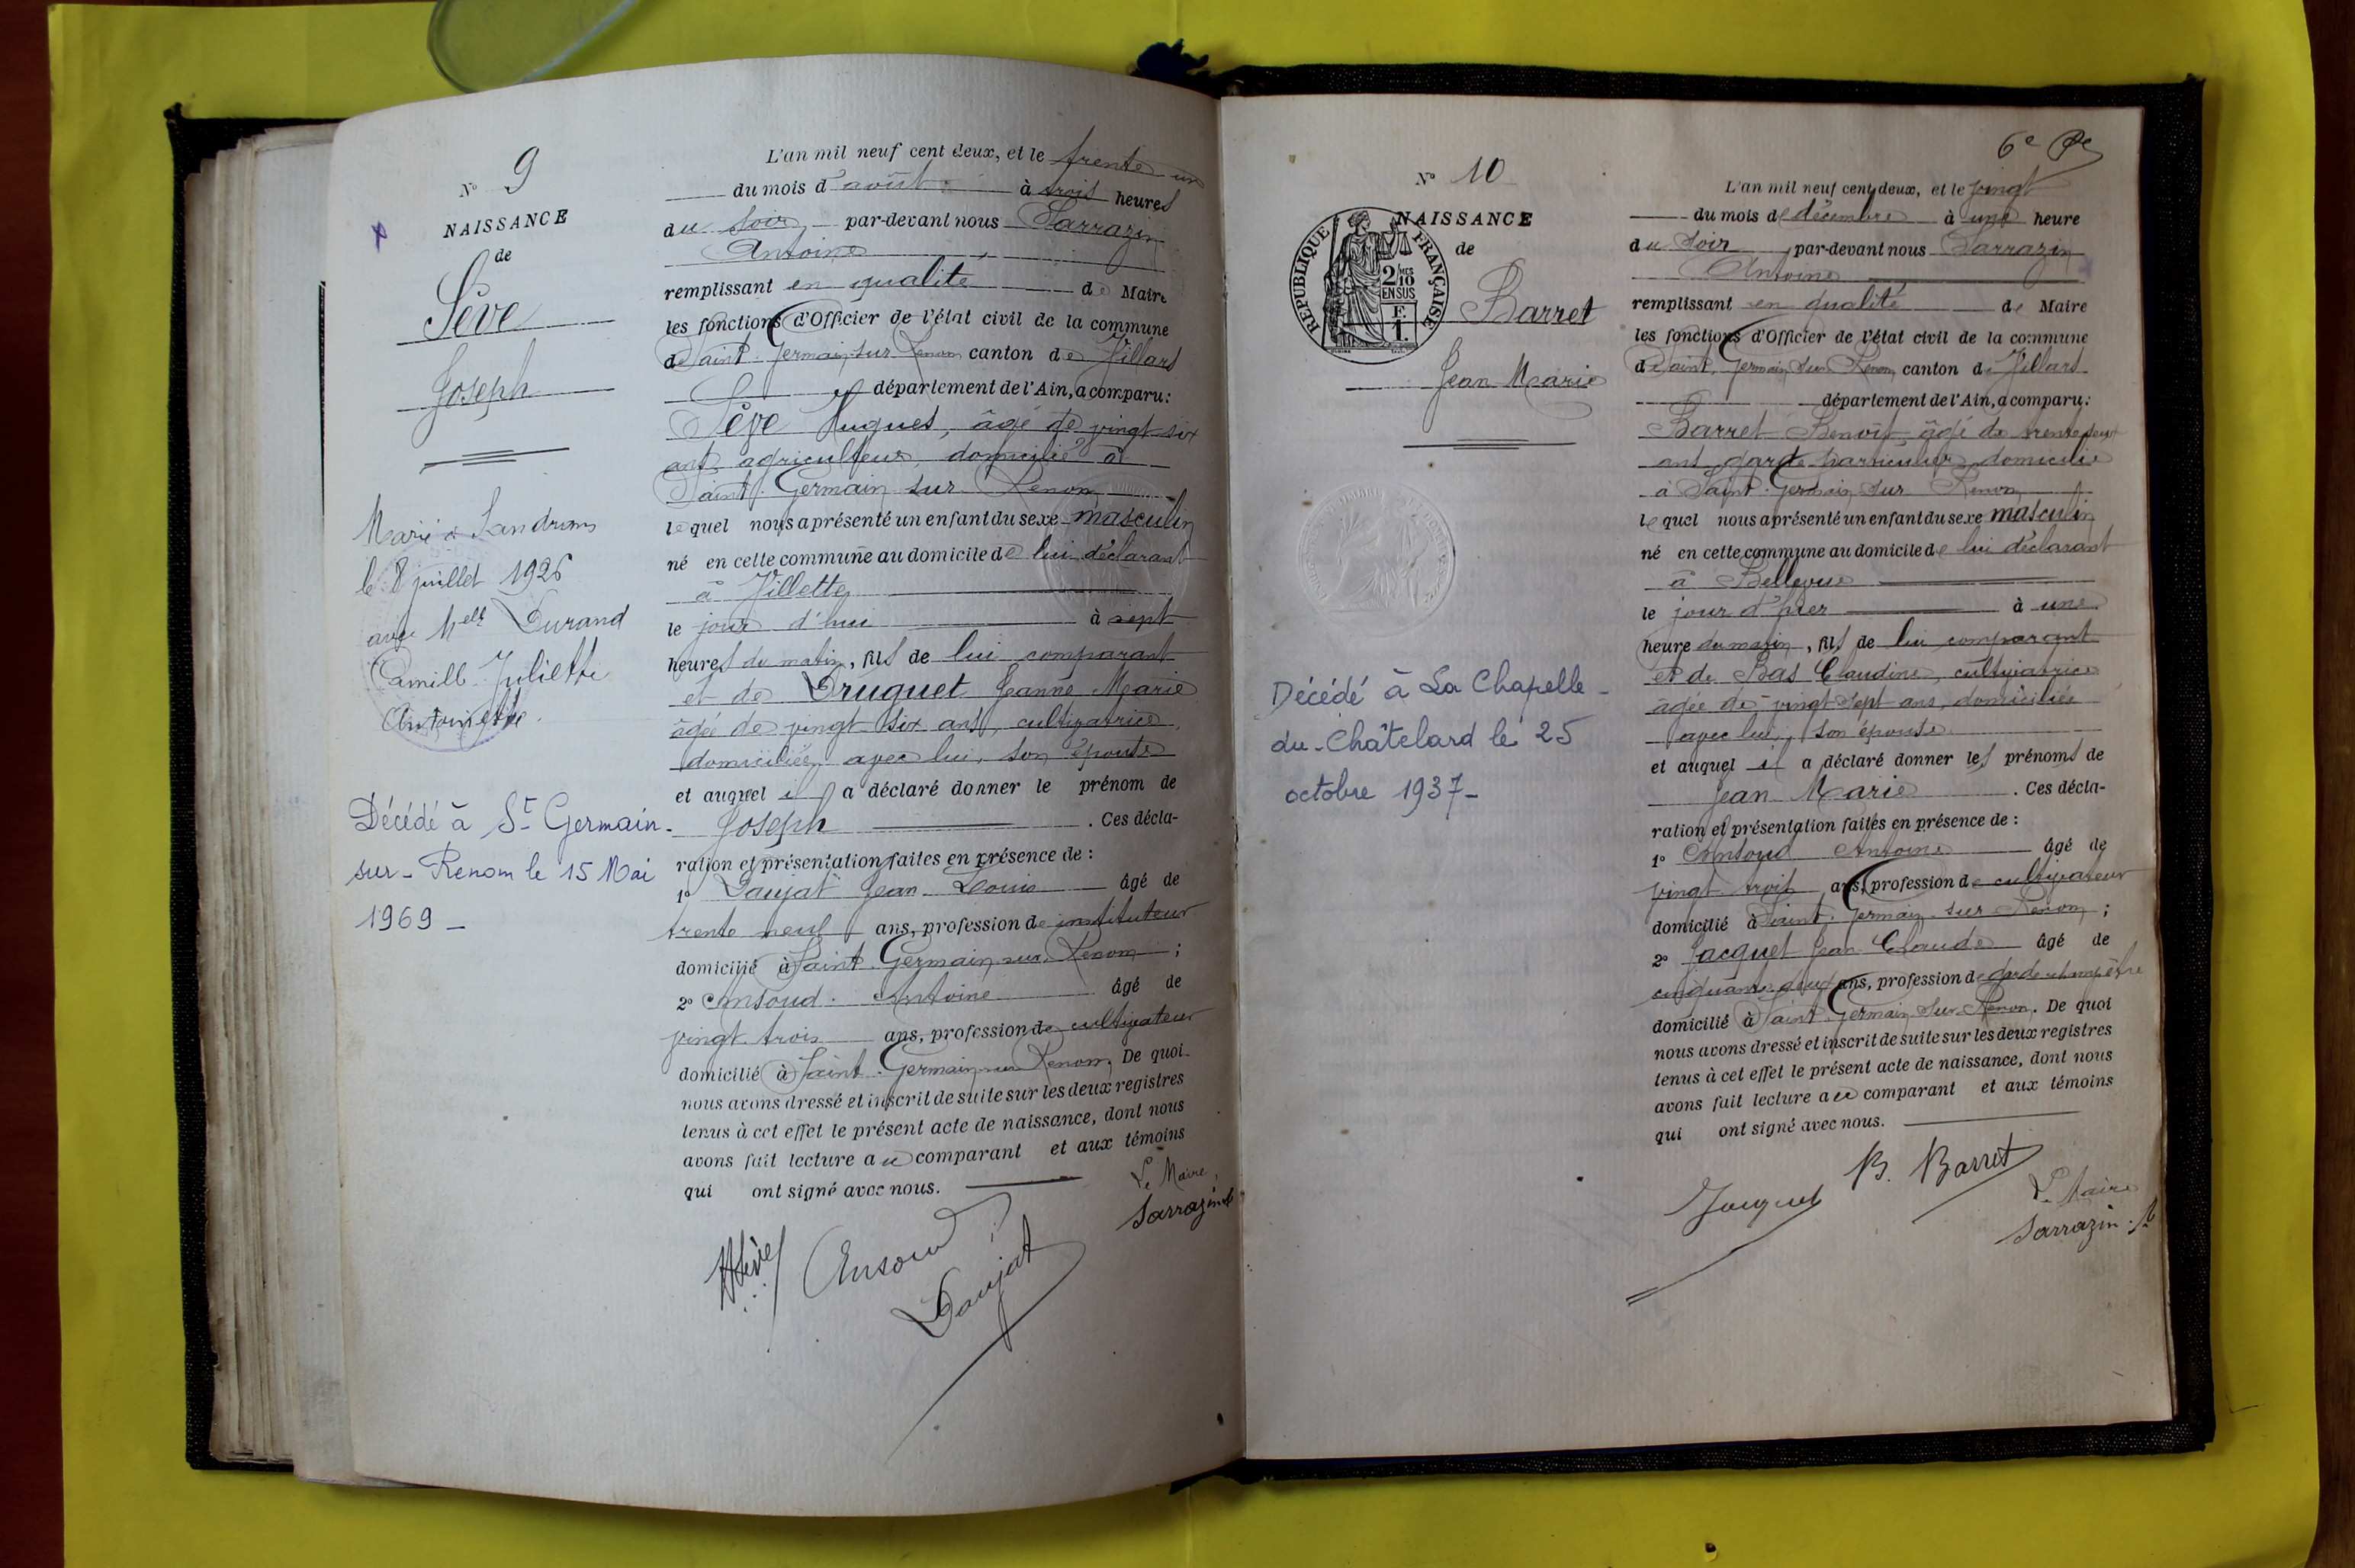 N° 9
NAISSANCE
de
Sève
Joseph
Marié à Landrans
le 8 juillet 1926
avec Melle Durand
Camille Juliette
Antoinette.
Décédé à St Germain-
sur-Renom le 15 Mai
1969 -
L'an mil neuf cent deux, et le trente un
du mois d'août à trois heures
du soir, par-devant nous Sarrazin
Antoine
remplissant en qualité de Maire
les fonctions d'Officier de l'état civil de la commune
de Saint-Germain-sur-Renom canton de Villars
département de l'Ain, a comparu:
Sève Hugues, âgé de vingt-six
ans, agriculteur, domicilié à
Saint-Germain sur Renom
lequel nous a présenté un enfant du sexe masculin
né en cette commune au domicile de lui déclarant
à Villette
le jour d'hui à sept
heures du matin, fils de lui comparant
et de Druguet Jeanne Marie
âgée de vingt six ans, cultivatrice,
domiciliée avec lui, son épouse
et auquel il a déclaré donner le prénom de
Joseph. Ces décla-
ration et présentation faites en présence de :
1° Daujat Jean-Louis âgé de
trente neuf ans, profession de instituteur
domicilié à Saint-Germain-sur-Renom ;
2° Ansoud Antoine âgé de
vingt trois ans, profession de cultivateur
domicilié à Saint-Germain-sur Renom. De quoi
nous avons dressé et inscrit de suite sur les deux registres
tenus à cet effet le présent acte de naissance, dont nous
avons fait lecture au comparant et aux témoins
qui ont signé avec nous.
Le Maire,
Sarrazin
H Sève
Ansoud
Daujat
6e
N° 10
NAISSANCE
de
RÉPUBLIQUE FRANÇAISE
2/10 MES
EN SUS
F.
1.
Barret
Jean Marie
Décédé à La Chapelle-
du-Châtelard le 25
octobre 1937-
L'an mil neuf cent deux, et le vingt
du mois de décembre à une heure
du soir, par-devant nous Sarrazin
Antoine
remplissant en qualité de Maire
les fonctions d'Officier de l'état civil de la commune
de Saint-Germain sur Renom canton de Villars
département de l'Ain, a comparu:
Barret Benoît, âgé de trente deux
ans, garde particulier, domicilié
à Saint-Germain sur Renom
lequel nous a présenté un enfant du sexe masculin
né en cette commune au domicile de lui déclarant
à Bellevue
le jour d'hier à une
heure du matin, fils de lui comparant
et de Bas Claudine, cultivatrice
âgée de vingt sept ans, domiciliée
avec lui, son épouse
et auquel il a déclaré donner les prénoms de
Jean Marie. Ces décla-
ration et présentation faites en présence de :
1° Ansoud Antoine âgé de
vingt trois ans, profession de cultivateur
domicilié à Saint-Germain-sur Renom ;
2° Jacquet Jean Claude âgé de
cinquante deux ans, profession de garde champêtre
domicilié à Saint-Germain sur Renom. De quoi
nous avons dressé et inscrit de suite sur les deux registres
tenus à cet effet le présent acte de naissance, dont nous
avons fait lecture au comparant et aux témoins
qui ont signé avec nous.
Jacquet
B. Barret
Le Maire
Sarrazin. A